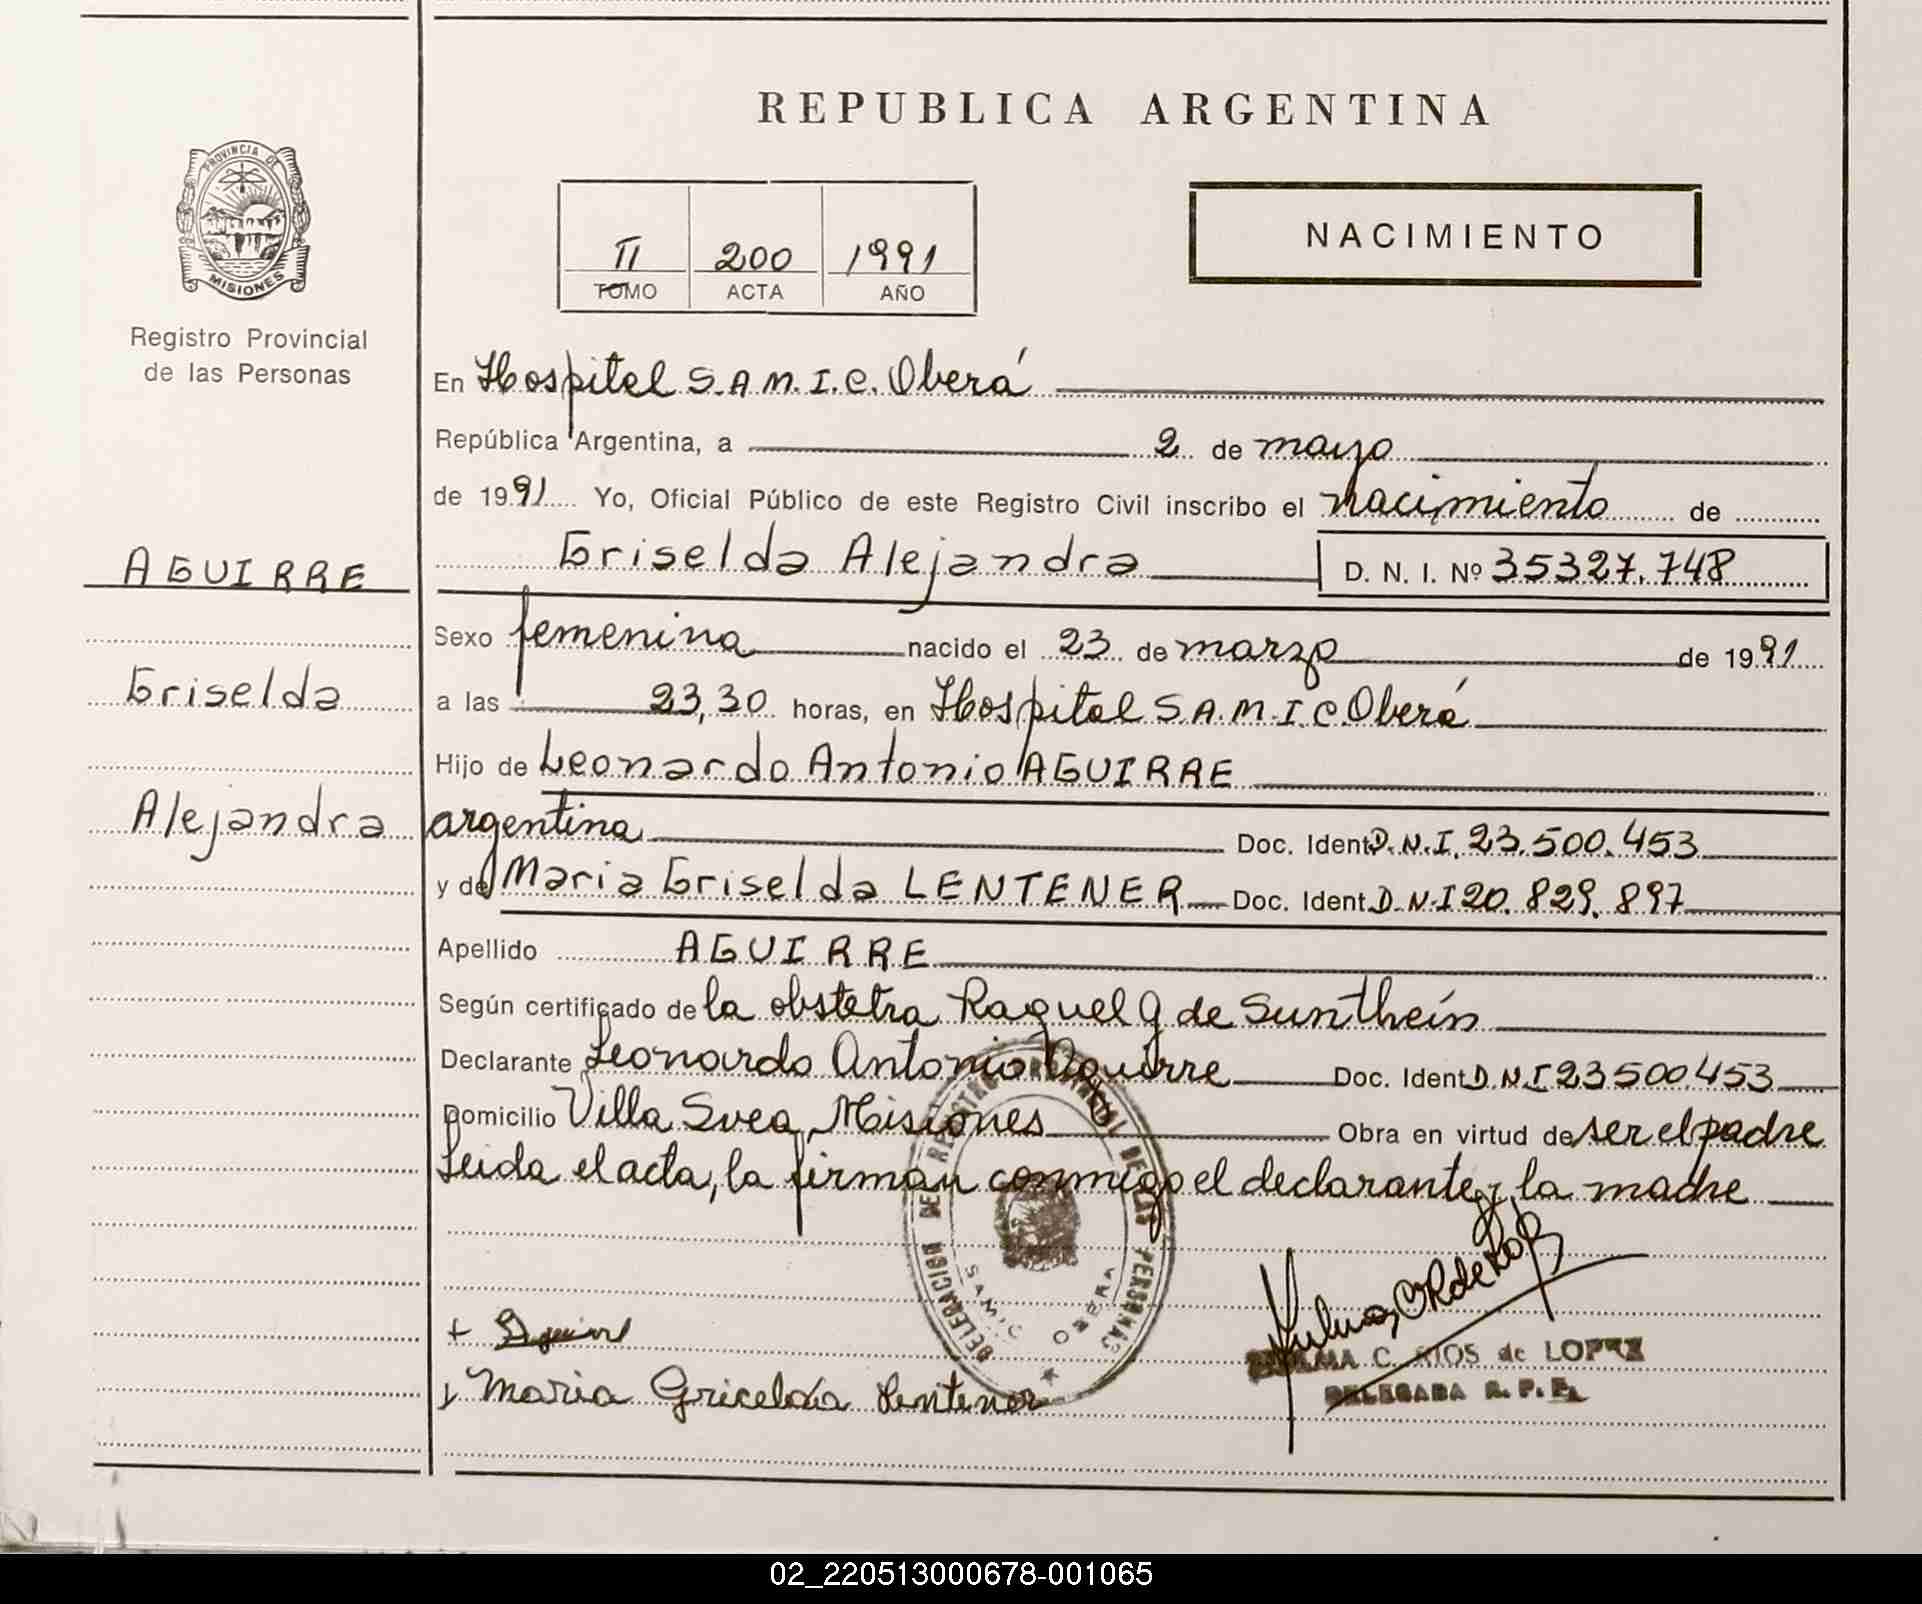 REPUBLICA ARGENTINA
PROVINCIA DE
MISIONES
Registro Provincial
de las Personas
II 200 1991
TOMO ACTA AÑO
NACIMIENTO
En Hospital S.A.M.I.C. Oberá
República Argentina, a 2 de mayo
de 1991 Yo, Oficial Público de este Registro Civil inscribo el nacimiento de
Griselda Alejandra D. N. I. Nº 35327.748
AGUIRRE
Griselda
Alejandra
Sexo femenina nacido el 23 de marzo de 1991
a las 23,30 horas, en Hospital S.A.M.I.C Oberá
Hijo de Leonardo Antonio AGUIRRE
argentina Doc. Ident D.N.I. 23.500.453
y de Maria Griselda LENTENER Doc. Ident D.N.I 20.829.897
Apellido AGUIRRE
Según certificado de la obstetra Raquel G de Sunthein
Declarante Leonardo Antonio Aguirre Doc. Ident D.N.I 23500.453
Domicilio Villa Svea, Misiones Obra en virtud de ser el padre
Leida el acta, la firman conmigo el declarante y la madre
DELEGACION DEL REGISTRO PROVINCIAL DE LAS PERSONAS
SAMIC OBERA
Maria Gricelda Lentener
C. RIOS de LOPEZ
DELEGADA R. P. P.
02_220513000678-001065